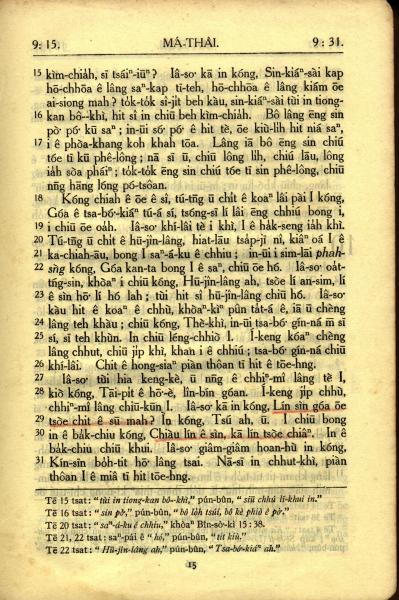 9: 15.
MÁ-THÀI.
9: 31.
15 kìm-chia̍h, sī tsáiⁿ-iūⁿ? Iâ-so͘ kā in kóng, Sin-kiáⁿ-sài kap
hō-chhōa ê lâng saⁿ-kap tī-teh, hō-chhōa ê lâng kiám ōe
ai-siong mah? to̍k-to̍k sî-ji̍t beh kàu, sin-kiáⁿ-sài tùi in tiong-
16 kan bô--khì, hit sî in chiū beh kìm-chia̍h. Bô lâng ēng sin
pò͘ pó͘ kū saⁿ; in-ūi só͘ pó͘ ê hit tè, ōe kiù-li̍h hit niá saⁿ,
17 i ê phòa-khang koh khah tōa. Lâng iā bô ēng sin chiú
tóe tī kū phê-lông; nā sī ū, chiū lông li̍h, chiú lāu, lông
ia̍h sòa pháiⁿ; to̍k-to̍k ēng sin chiú tóe tī sin phê-lông, chiū
nn̄g hāng lóng pó-tsôan.
18 Kóng chiah ê ōe ê sî, tú-tn̄g ū chi̍t ê koaⁿ lâi pài I kóng,
Góa ê tsa-bó͘-kiáⁿ tú-á sí, tsóng-sī lí lâi ēng chhiú bong i,
19 i chiū ōe oa̍h. Iâ-so͘ khí-lâi tè i khì, I ê ha̍k-seng ia̍h khì.
20 Tú-tn̄g ū chi̍t ê hū-jîn-lâng, hiat-lāu tsa̍p-jī nî, kiâⁿ oá I ê
21 ka-chiah-āu, bong I saⁿ-á-ku ê chhiu; in-ūi i sim-lāi phah-
22 sǹg kóng, Góa kan-ta bong I ê saⁿ, chiū ōe hó. Iâ-so͘ oa̍t-
tńg-sin, khòaⁿ i chiū kóng, Hū-jîn-lâng ah, tsòe lí an-sim, lí
23 ê sìn hō͘ lí hó lah; tùi hit sî hū-jîn-lâng chiū hó. Iâ-so͘
kàu hit ê koaⁿ ê chhù, khòaⁿ-kìⁿ pûn ta̍t-á ê, iā ū chèng
24 lâng teh khàu; chiū kóng, Thè-khì, in-ūi tsa-bó͘ gín-ná m̄ sī
25 sí, sī teh khùn. In chiū léng-chhiò I. Í-keng kóaⁿ chèng
lâng chhut, chiū ji̍p khì, khan i ê chhiú; tsa-bó͘ gín-ná chiū
26 khí-lâi. Chit ê hong-siaⁿ piàn thôan tī hit ê tōe-hng.
27 Iâ-so͘ tùi hia keng-kè, ū nn̄g ê chhiⁿ-mî lâng tè I,
28 kiò kóng, Tāi-pi̍t ê hō͘-è, lîn-bín góan. Í-keng ji̍p chhù,
chhiⁿ-mî lâng chiū-kūn I. Iâ-so͘ kā in kóng, Lín sìn góa ōe
29 tsòe chit ê sū mah? In kóng, Tsú ah, ū. I chiū bong
30 in ê ba̍k-chiu kóng, Chiàu lín ê sìn, kā lín tsòe chiâⁿ. In ê
ba̍k-chiu chiū khui. Iâ-so͘ giâm-giâm hoan-hù in kóng,
31 Kín-sīn bo̍h-tit hō͘ lâng tsai. Nā-sī in chhut-khì, piàn
thôan I ê miâ tī hit tōe-hng.
Tē 15 tsat: “tùi in tiong-kan bô--khì,” pún-bûn, “siū chhú lī-khui in.”
Tē 16 tsat: “sin pò͘,” pún-bûn, “bô lo̍h tsúi, bô kè phiò ê pò͘.”
Tē 20 tsat: “saⁿ-á-ku ê chhiu,” khòaⁿ Bîn-sò͘-kì 15: 38.
Tē 21, 22 tsat: saⁿ-pái ê “hó,” pún-bûn, “tit kiù.”
Tē 22 tsat: “Hū-jîn-lâng ah,” pún-bûn, “Tsa-bó͘-kiáⁿ ah.”
15